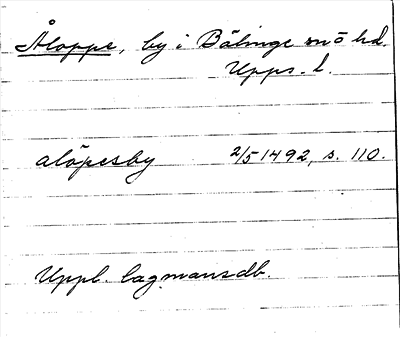 Åloppe, by i Bälinge sn o hd.
Upps. l.
alöpesby 2/5 1492, s. 110.
Uppl. lagmansdb.